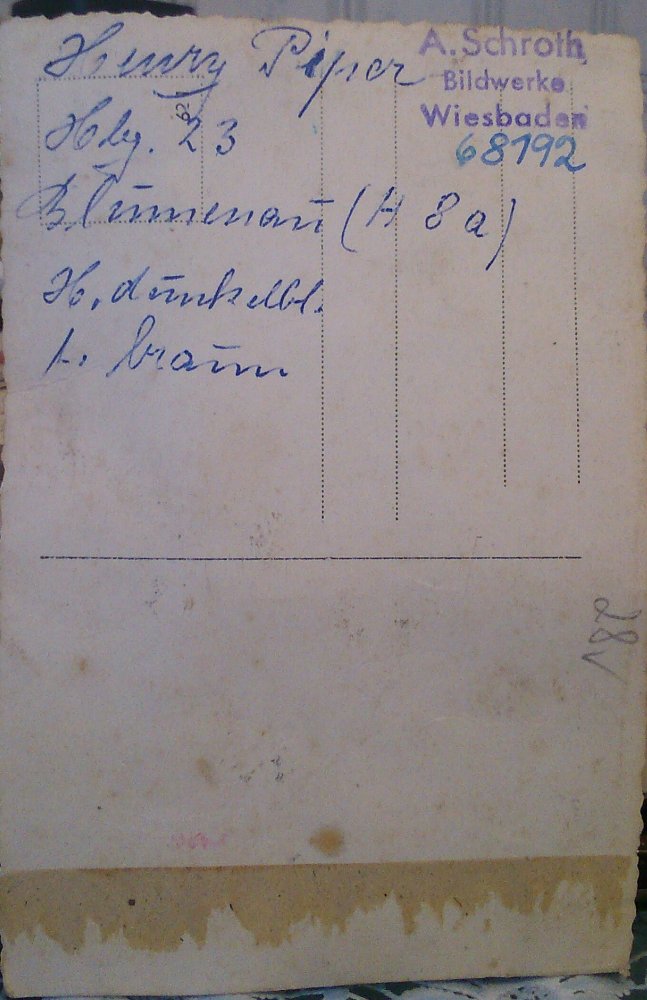 Henry Piper
Hbg. 23
Blumenau (H 8 a)
H. dunkelbl.
A. braun
A. Schroth
Bildwerke
Wiesbaden
68192
28